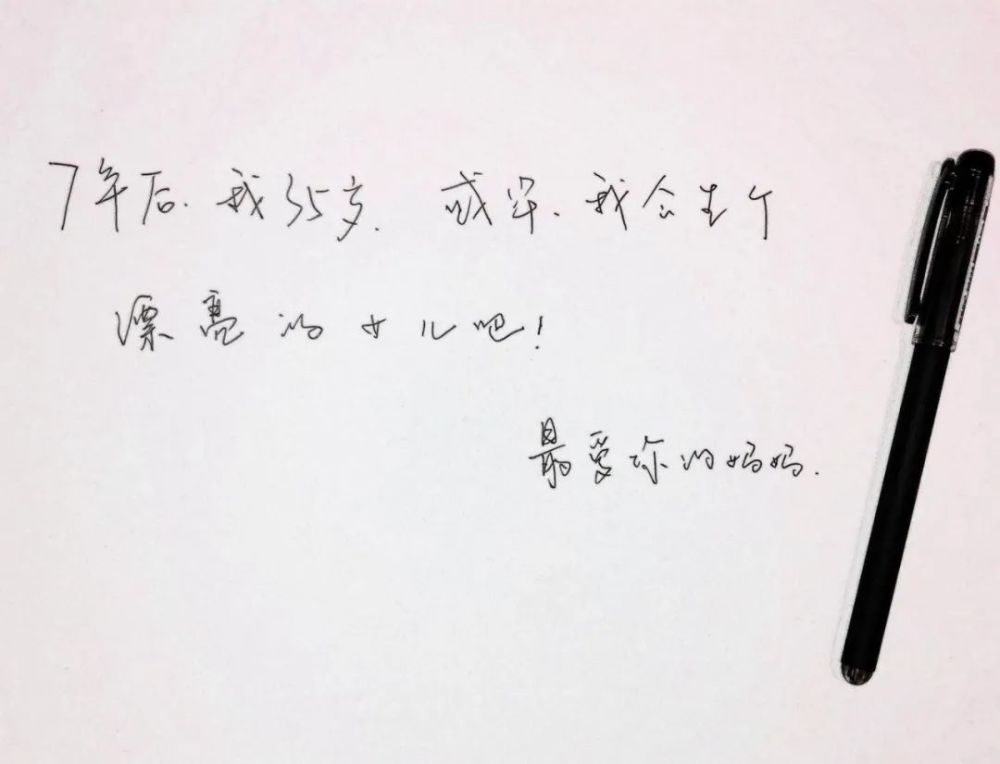 7年后.我35岁.或许.我会生个
漂亮的女儿吧!
最爱你的妈妈.